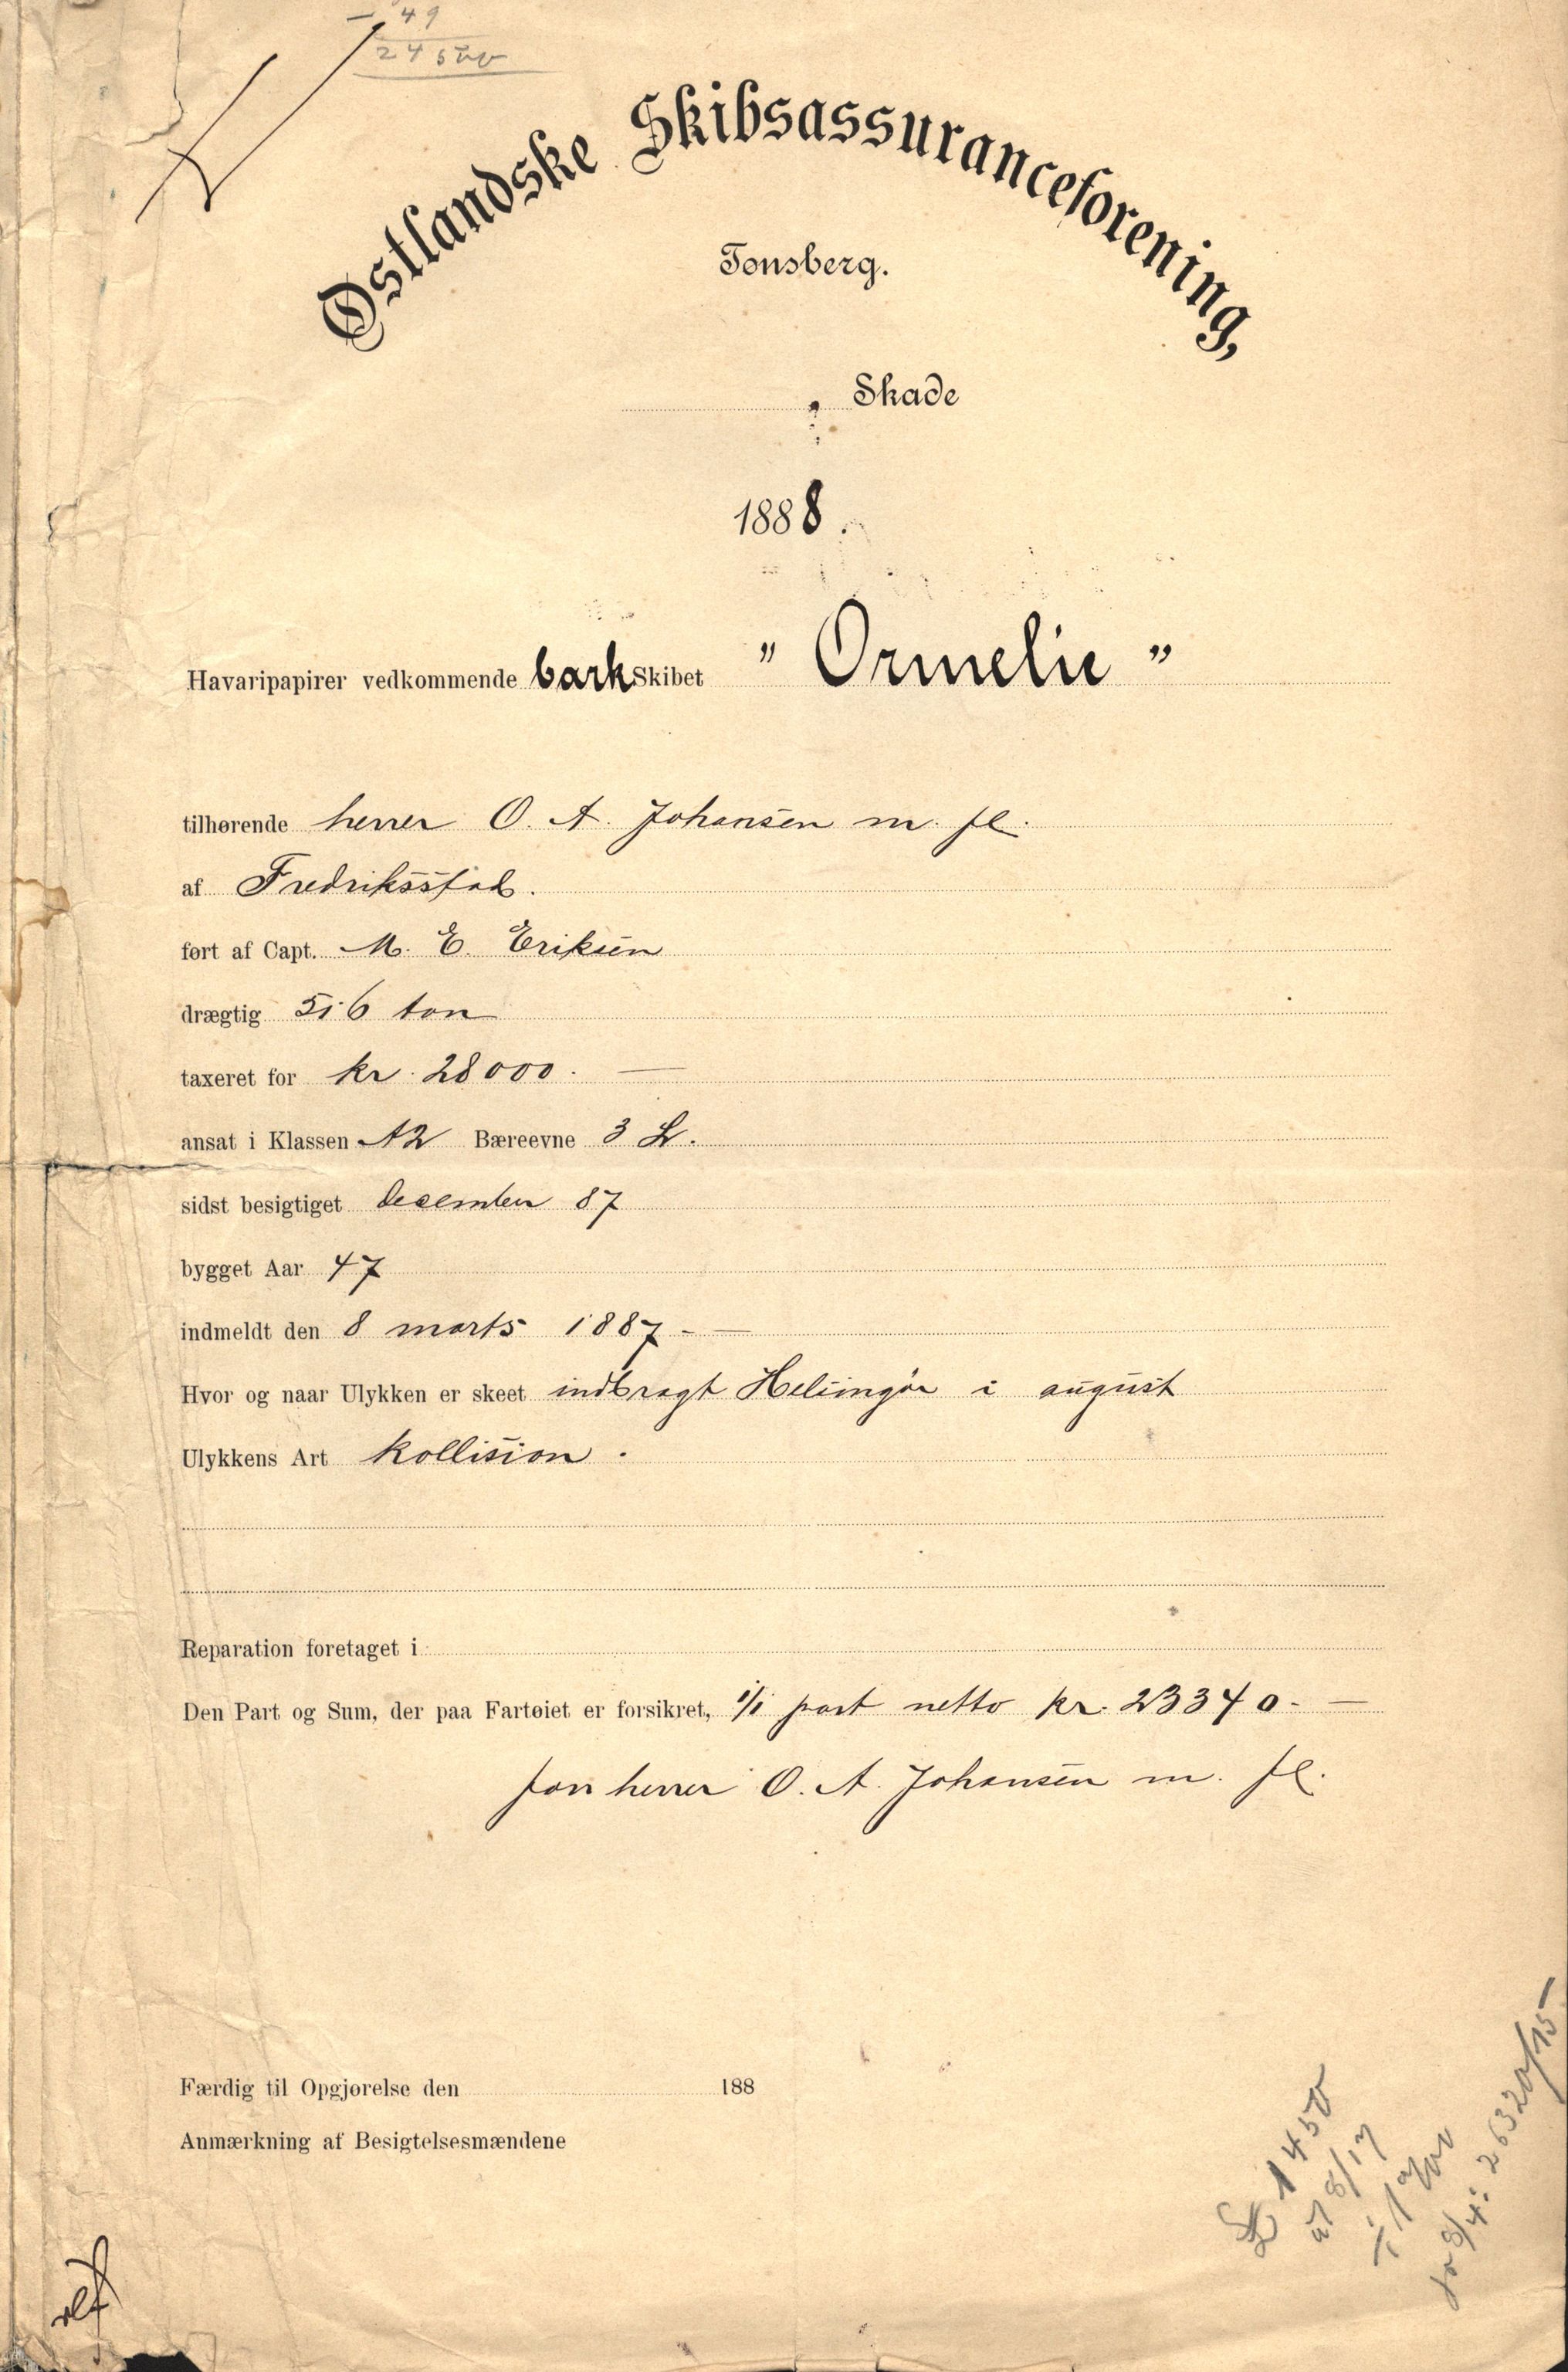 49
24500
Østlandske Skibsassuranceforening,
Tønsberg.
Skade
1888.
Havaripapirer vedkommende bark Skibet " Ormelie "
tilhørende herrer O. A. Johansen m. fl.
af Fredriksstad.
ført af Capt. M. E. Eriksen
drægtig 516 ton
taxeret for kr. 28000. —
ansat i Klassen A2 Bæreevne 3 L.
sidst besigtiget december 87
bygget Aar 47
indmeldt den 8 marts 1887 - —
Hvor og naar Ulykken er skeet indbragt Helsingør i august
Ulykkens Art kollision .
Reparation foretaget i
Den Part og Sum, der paa Fartøiet er forsikret, 1/1 part netto kr. 23340 - —
for herrer O. A. Johansen m. fl.
Færdig til Opgjørelse den 188
Anmærkning af Besigtelsesmændene
£ 1450